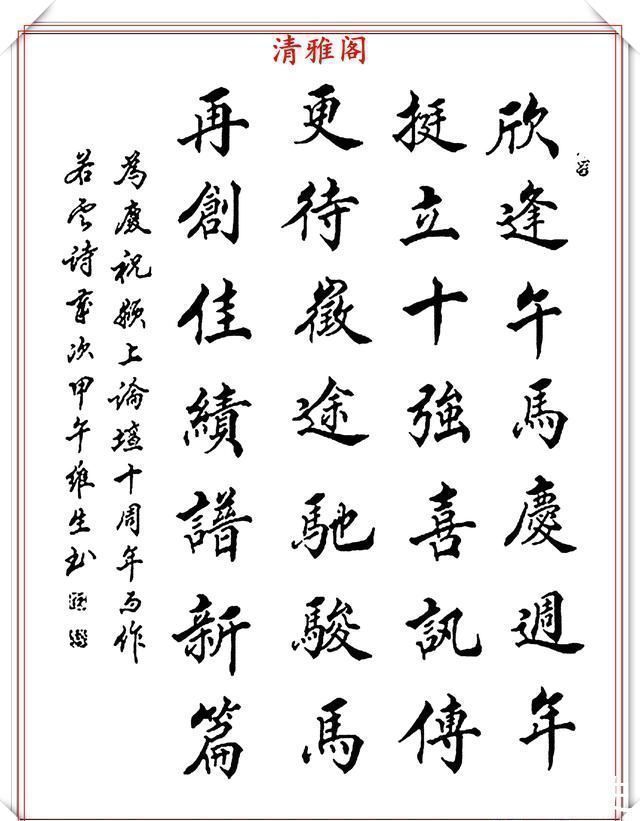 清雅阁
欣逢午馬慶週年
挺立十強喜訊傳
更待徵途馳駿馬
再創佳績譜新篇
為慶祝颍上論壇十周年而作
若雲詩歲次甲午維生书